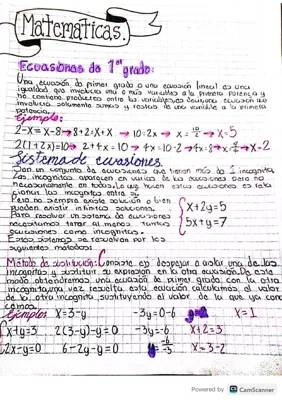 Matemáticas.
Ecuasiones de 1er grado:
Una ecuación de primer grado o una ecuación lineal es una
igualdad que involucra una o más variables a la primera potencia y
no contiene productos entre las variables, es decir, una ecuación que
involucra solamente sumas y restas de una variable a la primera
potencia.
Ejemplo:
2-x=x-8→8+2=x+x → 10=2x → x=10/2 → x=5
2(1+2x)=10→ 2+4x=10 → 4x=10-2→4x=8→x=8/4→x=2
Sistema de ecuasiones
Son un conjunto de ecuasiones que tienen más de 1 incognita
Las incognitas aparecen en varias de las ecuasiones pero no
necesariamente en todas. Lo que hacen estas ecuasiones es rela
cionar las incognitas entre sí.
Pero no siempre existe solución o bien
pueden existir infinitas soluciones.
Para resolver un sistema de ecuasiones
necesitamos tener al menos tantas
ecuasiones como incognitas.
Estos sistemas se resuelven por los
siguientes metodos:
x+2y=5
5x+y=7
Método de sustitución: Consiste en despejar o aislar una de las
incognitas y sustituir su expresión en la otra ecuasión. De este
modo obtendremos una ecuasión de primer grado con la otra
incognita, una vez resuelta esta ecuación calculamos el valor
de la otra incognita sustituyendo el valor de la que ya cono
cemos.
Ejemplos x=3-y -3y=0-6 y=2 x=1
x+y=3 2(3-y)-y=0 -3y=-6 x+2=3
2x-y=0 6-2y-y=0 x=3-2
Powered by CamScanner